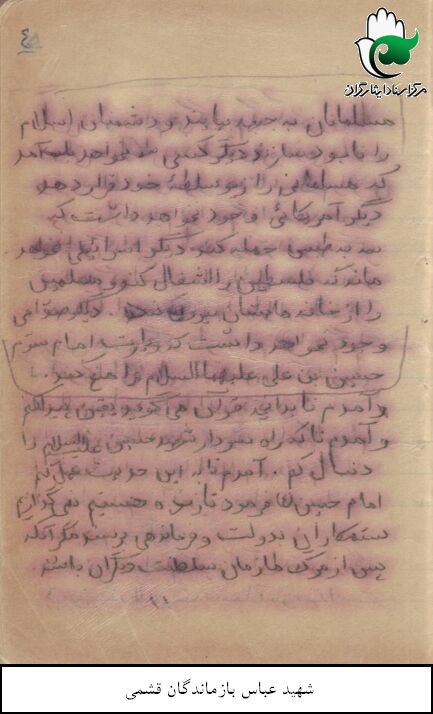 ۴
مرکز اسناد ایثارگران
مسلمانان به جبهه بیایند و دشمنان اسلام
را نابود سازند دیگر کسی نخواهد آمد
که مسلمانی را زیر سلطهٔ خود قرار دهد
دیگر آمریکائی وجود نخواهد داشت که
به طبس حمله کند دیگر اسرائیلی نخواهد
ماند که فلسطین را اشغال کند و مسلمین
را از خانه هایشان بیرون کند. دیگر صدامی
وجود نخواهد داشت که زیارت امام سوم
حسین بن علی علیهما السلام را منع کند.
و آمدم تا بدانم قرآن می گوید یقین
و آمدم تا که راه سرور شهید حسین علیه السلام را
دنبال کنم.. آمدم تا به این حدیث عمل کنم
امام حسین (ع) فرمود تا زنده هستیم نمی گذاریم
ستمکاران به دولت و فرماندهی برسند مگر آنکه
پس از مرگ ما زمان سلطنت دیگران باشد.
شهید عباس بازماندگان قشمی